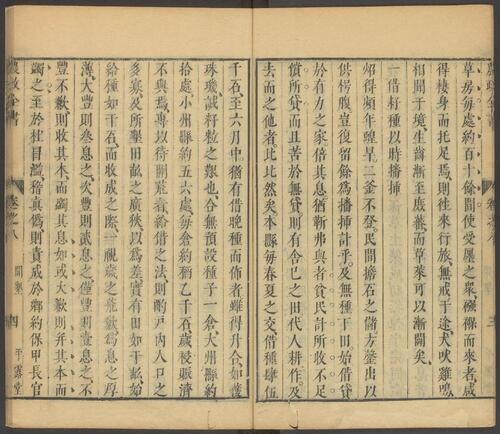 草房每處約百十餘間使受廛之衆襁褓而來者咸
得棲身而托足焉則往來行旅無戒于途犬吠雞鳴
相聞于境生齒漸至庶蕃而草萊可以漸闢矣
一借籽種以時播挿
炤得頻年蝗旱二釜不登民間擔石之儲方罄出以
供枵腹豈復留餘為播挿計乎及無種下田始借貸
於有力之家倍其息猶靳弗與者民計所收不足
償所貸而且苦於無貸則有舍巳之田代人耕作及
去而之他者比比然矣本縣每春夏之交借種肆伍
千石至六月中猶有借晚種而佈者雖得升合如獲
珠璣誠籽粒之艱也合無預設種子一倉大州縣約
拾處小州縣約五六處每倉約稻乙千石歲稔賑濟
不與焉專以待開荒者給借之法則酌戸內人口之
多寡及所墾田畝之廣狹以爲差實有田如干畝如
給種如干石而收成之際一視歲之荒歉爲息之厚
薄大豐則叁息之次豐則貳息之僅豐則壹息之不
豐不歉則收其本而蠲其息如或大歉則并其本而
蠲之至於杜冒濫稽真僞則責成於鄉約保甲長官
農政全書
卷之八
開墾
四
平露堂